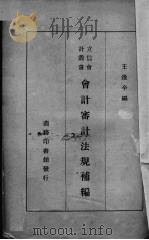 王逢辛編
立信會
計叢書
會計審計法規補編
商務印書館發行